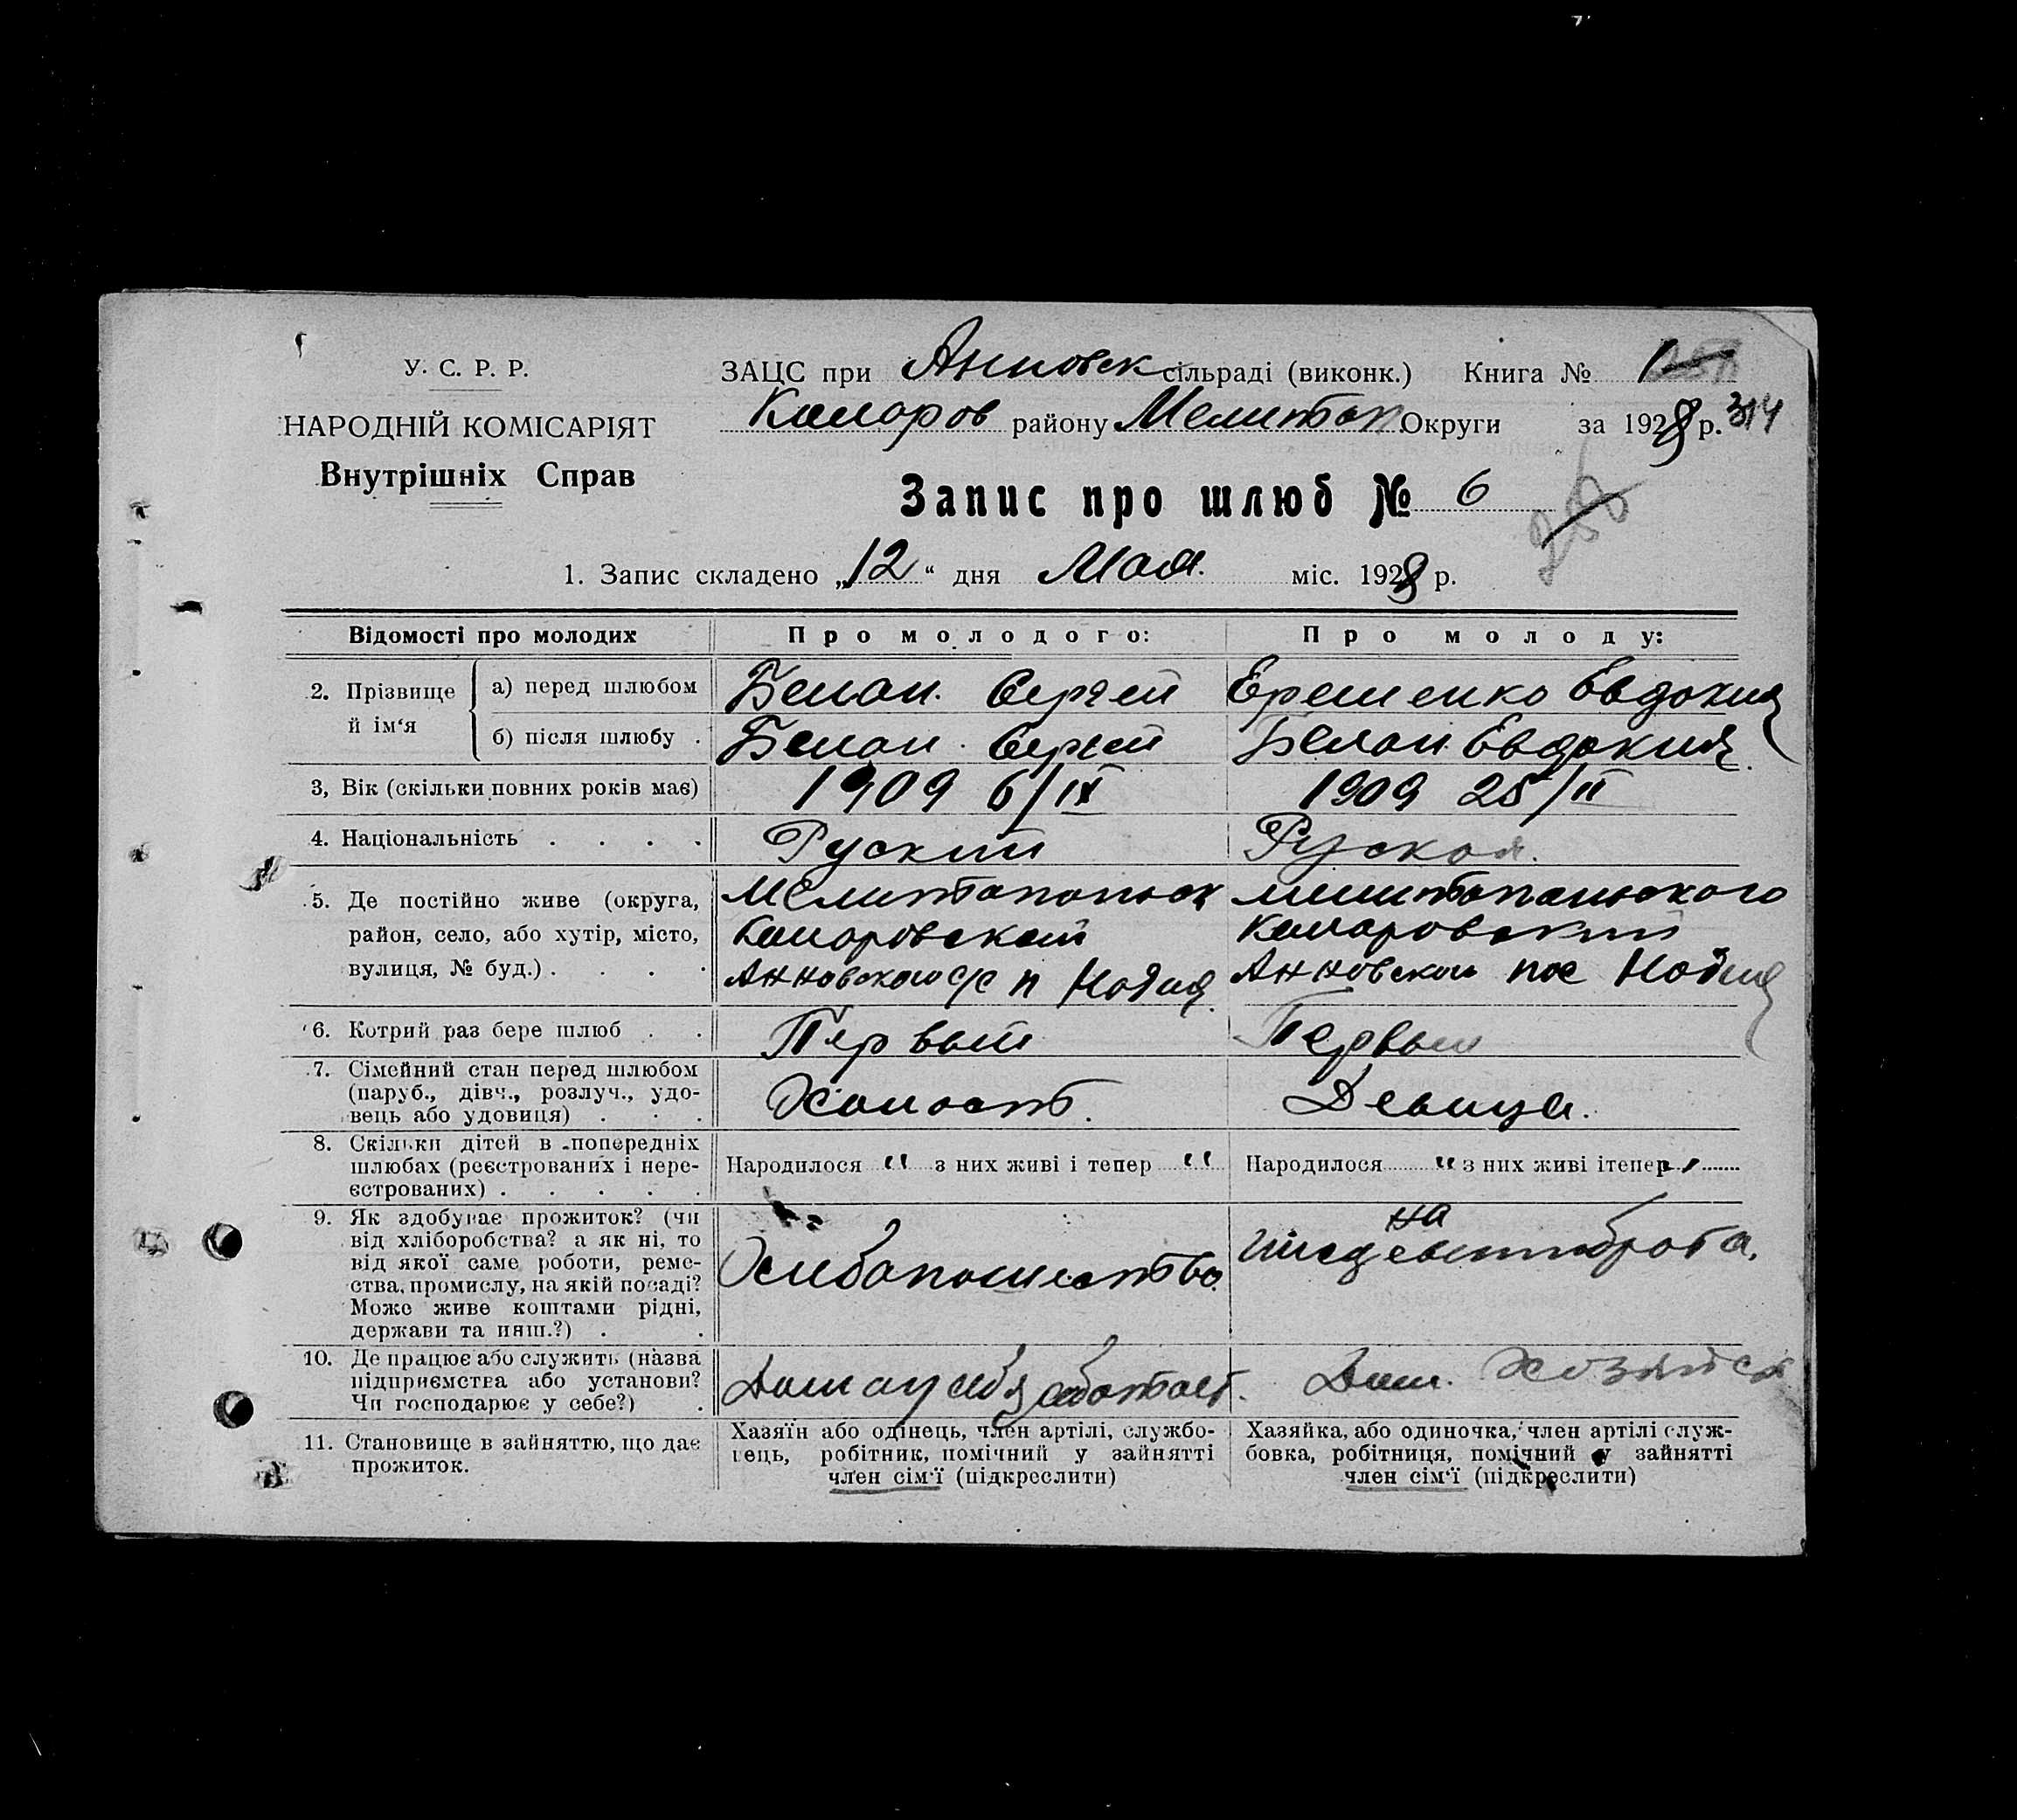 У. С. Р. Р.
НАРОДНІЙ КОМІСАРІЯТ
Внутрішніх Справ
ЗАЦС при Анновск сільраді (виконк.) Книга № 1
Комаров району Мелитоп Округи за 1928 р. 314
Запис про шлюб № 6
1. Запис складено „12“ дня Мая. міс. 1928 р.
Відомості про молодих
Про молодого:
Про молоду:
2. Прізвище й ім‘я
а) перед шлюбом
Белан. Сергей
Еременко Евдокия
б) після шлюбу .
Белан. Сергей
Белан Евдокия.
3, Вік (скільки повних років має)
1909 6/IX
1909 25/II
4. Національність . . . .
Руский
Руская.
5. Де постійно живе (округа,
район, село, або хутір, місто,
вулиця, № буд.) . . . .
Мелитопольск
Комаровский
Анновского с/с п
Комаровский
Анновском пос
6. Котрий раз бере шлюб . .
Первый
Первый
7. Сімейний стан перед шлюбом
(паруб., дівч., розлуч., удо-
вець або удовиця) . . .
Холост.
Девица.
8. Скільки дітей в попередніх
шлюбах (реєстрованих і нере-
єстрованих) . . . . .
Народилося " з них живі і тепер "
Народилося " з них живі і тепер "
9. Як здобуває прожиток? (чи
від хліборобства? а як ні, то
від якої саме роботи, реме-
ства, промислу, на якій посаді?
Може живе коштами рідні,
держави та инш.?) . .
на
10. Де працює або служить (назва
підприємства або установи?
Чи господарює у себе?) .
Дом.
11. Становище в зайняттю, що дає
прожиток.
Хазяїн або одінець, член артілі, службо-
вець, робітник, помічний у зайнятті
член сім‘ї (підкреслити)
Хазяйка, або одиночка, член артілі служ-
бовка, робітниця, помічний у зайнятті
член сім‘ї (підкреслити)